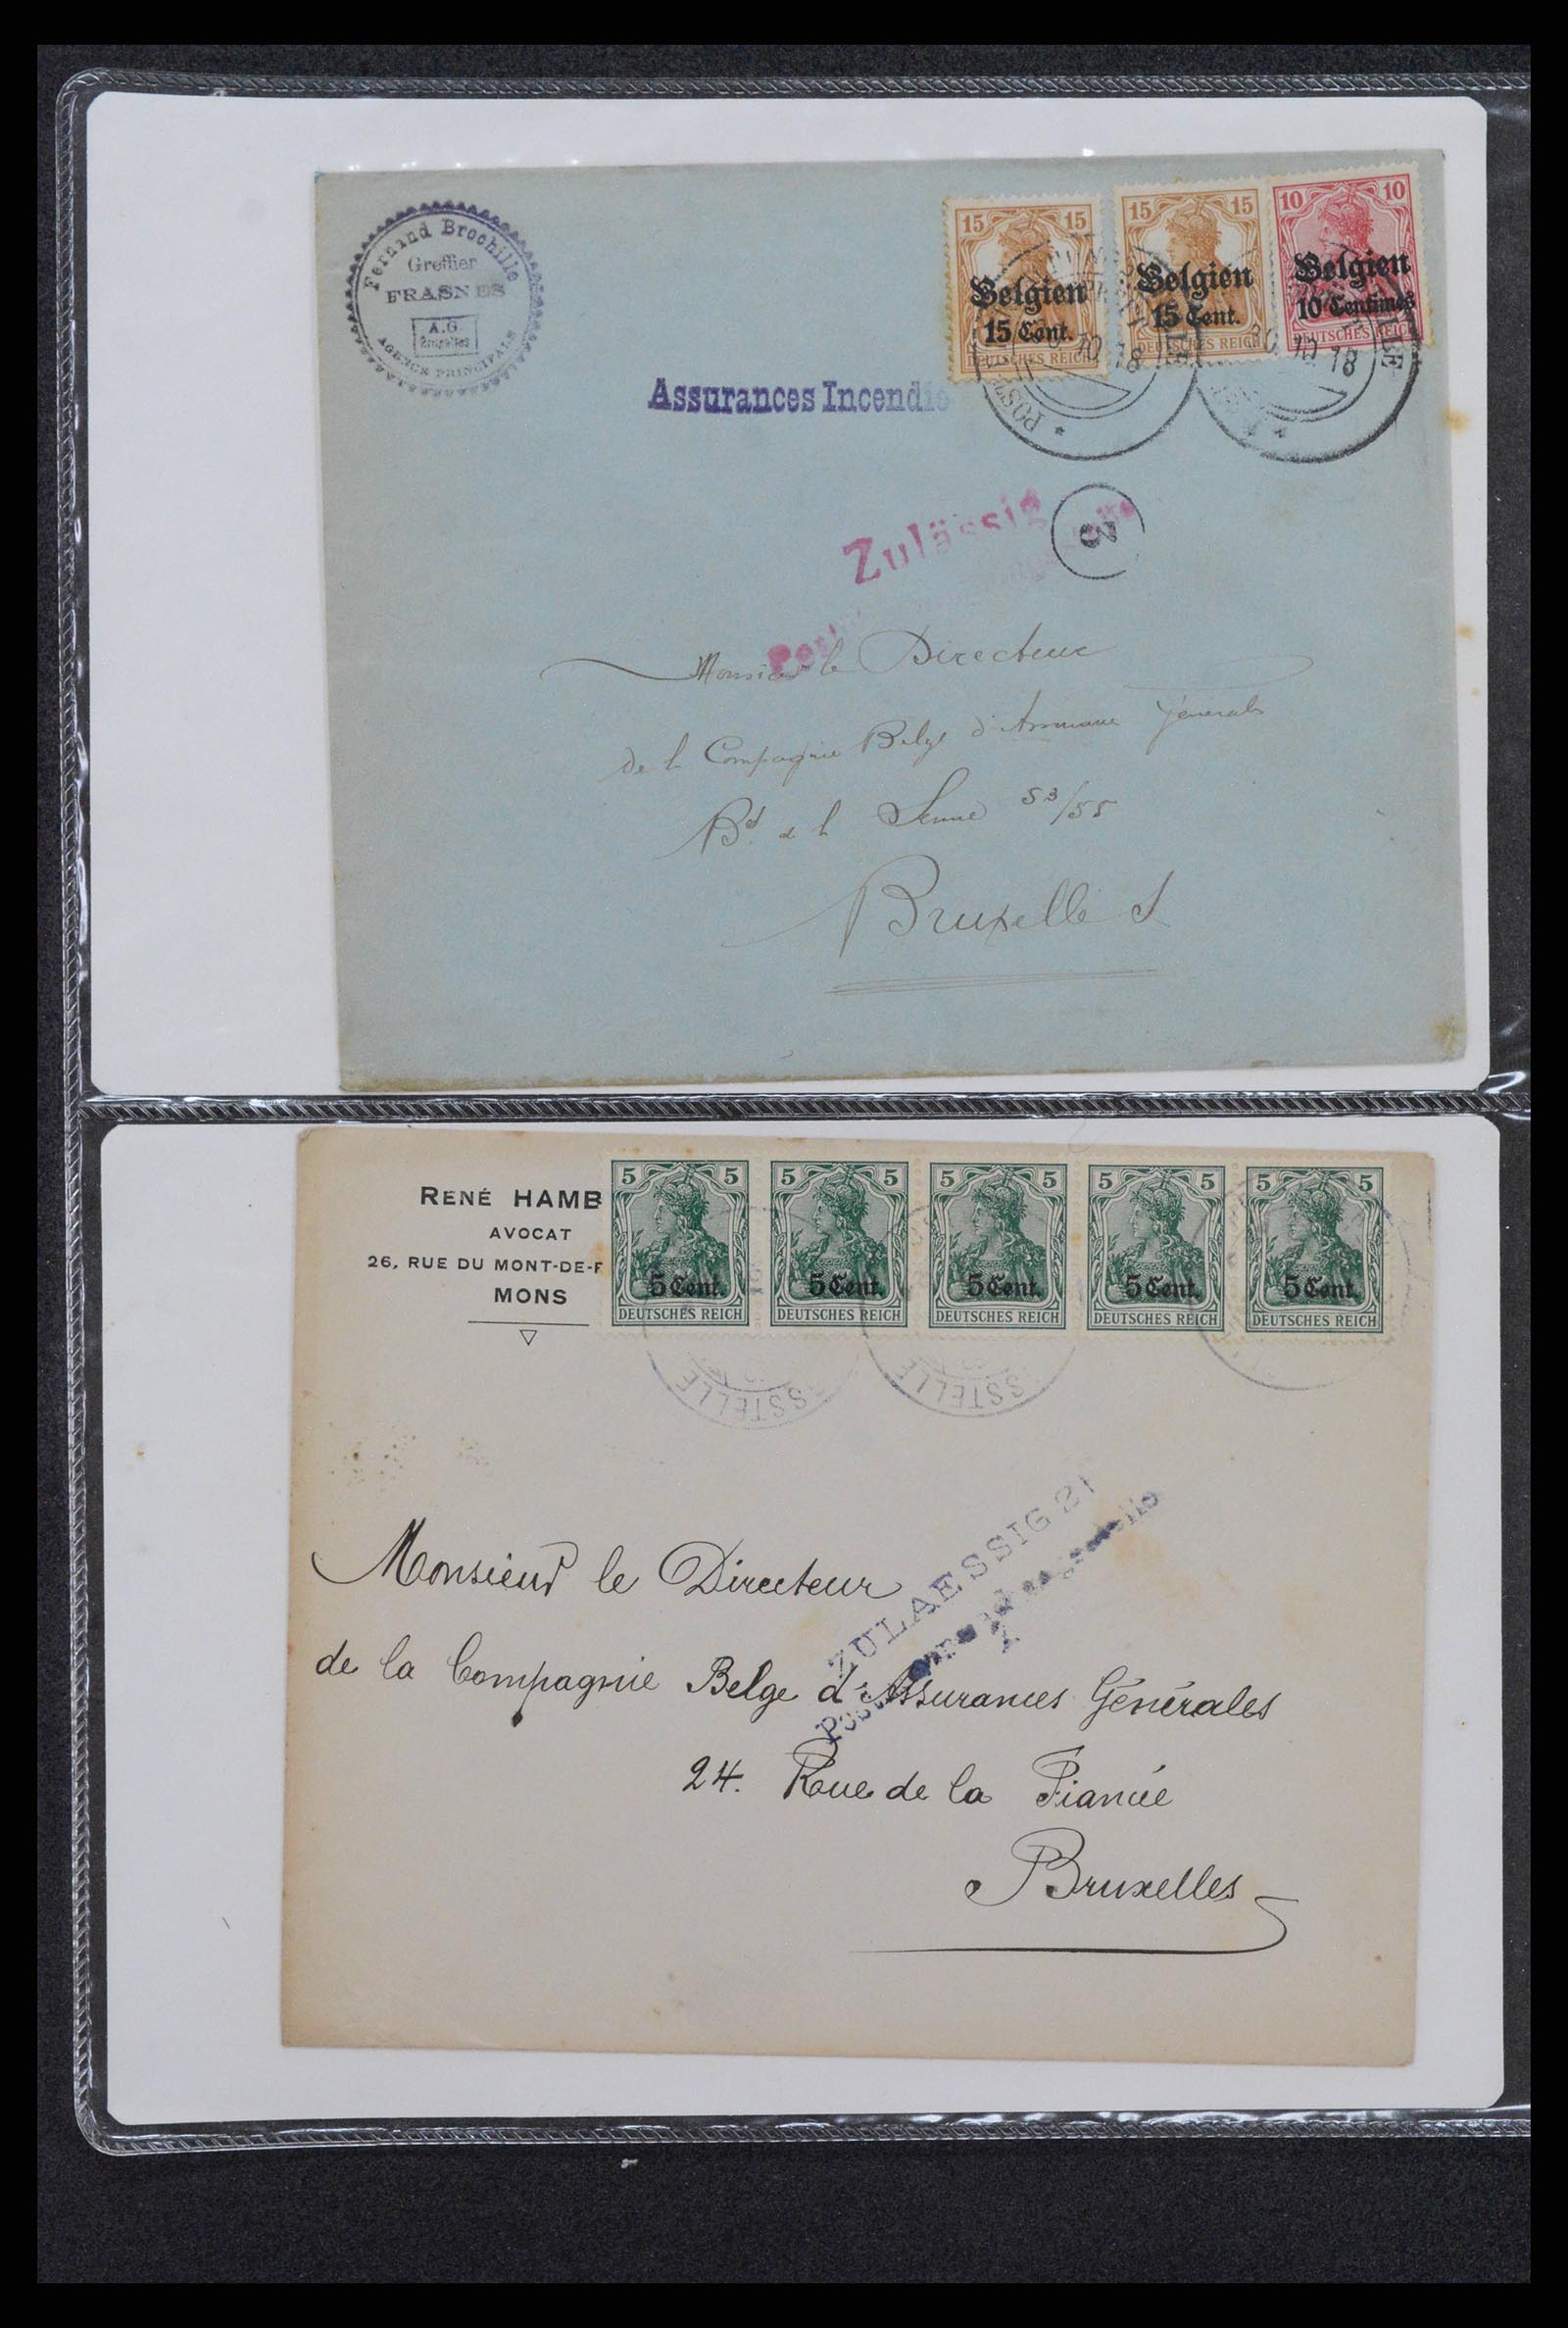 Fernand Brochille
Greffier
FRASNES
A.G.
Bruxelles
AGENCE PRINCIPALE
15 15
Belgien
15 Cent.
DEUTSCHES REICH
15 15
Belgien
15 Cent.
DEUTSCHES REICH
10 10
Belgien
10 Centimes
DEUTSCHES REICH
10 18
10 18
Assurances Incendie
Zulässig
2
Monsieur le Directeur
de la Compagnie Belge d'Assurance Générales
Bd de la Senne 53/55
Bruxelles
RENÉ HAMB
AVOCAT
26, RUE DU MONT-DE-P
MONS
5 5
5 Cent.
DEUTSCHES REICH
5 5
5 Cent.
DEUTSCHES REICH
5 5
5 Cent.
DEUTSCHES REICH
5 5
5 Cent.
DEUTSCHES REICH
5 5
5 Cent.
DEUTSCHES REICH
SSTELLE
SSTELLE
ZULAESSIG 21
Monsieur le Directeur
de la Compagnie Belge d'Assurances Générales
24. Rue de la Fiancée
Bruxelles